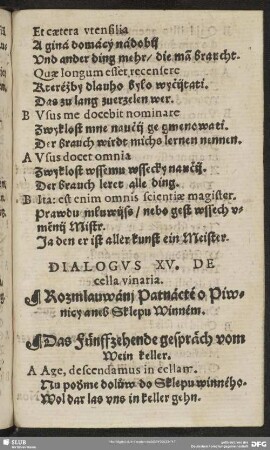 Et cætera vtensilia
A giná domácý nádobij
Vnd ander ding mehr/ die mã braucht.
Quæ longum esset recensere
Kteréžby dlauho bylo wyčijtati.
Das zu lang zuerzelen wer.
B Vsus me docebit nominare
Zwyklost mne naučij ge gmenowati.
Der brauch wirdt michs lernen nennen.
A Vsus docet omnia
Zwyklost wssemu wssecky naučij.
Der brauch leret alle ding.
B Ita: est enim omnis scientiæ magister.
Prawdu mluwijsš/ nebo gest wssech v-
měnij Mistr.
Ja den er ist aller kunst ein Meister.
DIALOGVS XV. DE
cella vinaria.
¶ Rozmlauwánj Patnácté o Piw-
nicy aneb Sklepu Winném.
¶ Das Fünffzehende gespräch vom
Wein keller.
A Age, descendamus in cellam.
Nu poďme dolůw do Sklepu winného.
Wol dar las vns in keller gehn.
SLUB